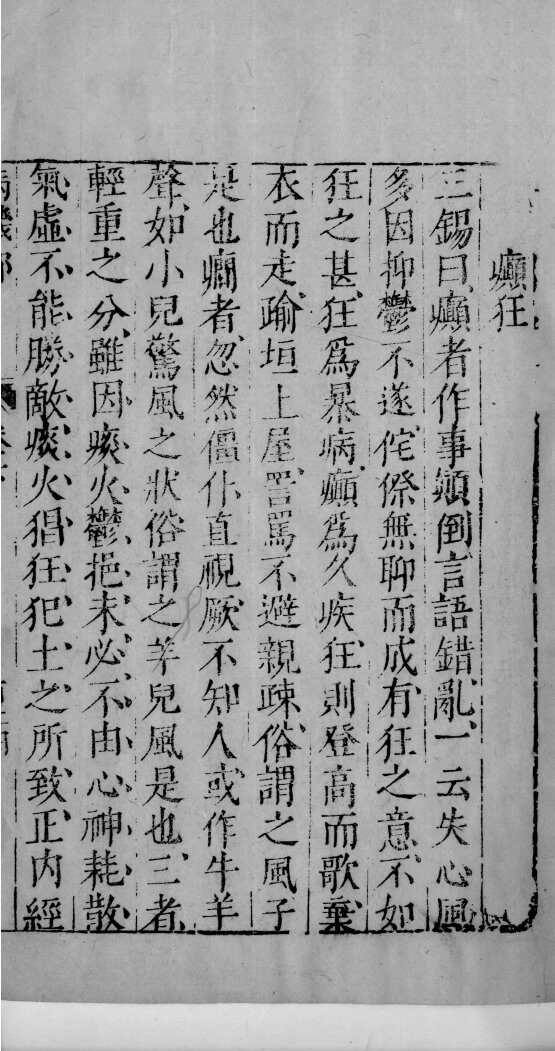 癲狂
三錫曰癲者作事顛倒言語錯亂一云失心風
多因抑鬱不遂侘傺無聊而成有狂之意不如
狂之甚狂爲暴病癲爲久疾狂則登高而歌棄
衣而走踰垣上屋詈罵不避親疎俗謂之風子
是也癇者忽然僵仆直視厥不知人或作牛羊
聲如小兒驚風之狀俗謂之羊兒風是也三者
輕重之分雖因痰火鬱挹未必不由心神耗散
氣虛不能勝敵痰火猖狂犯土之所致正内經